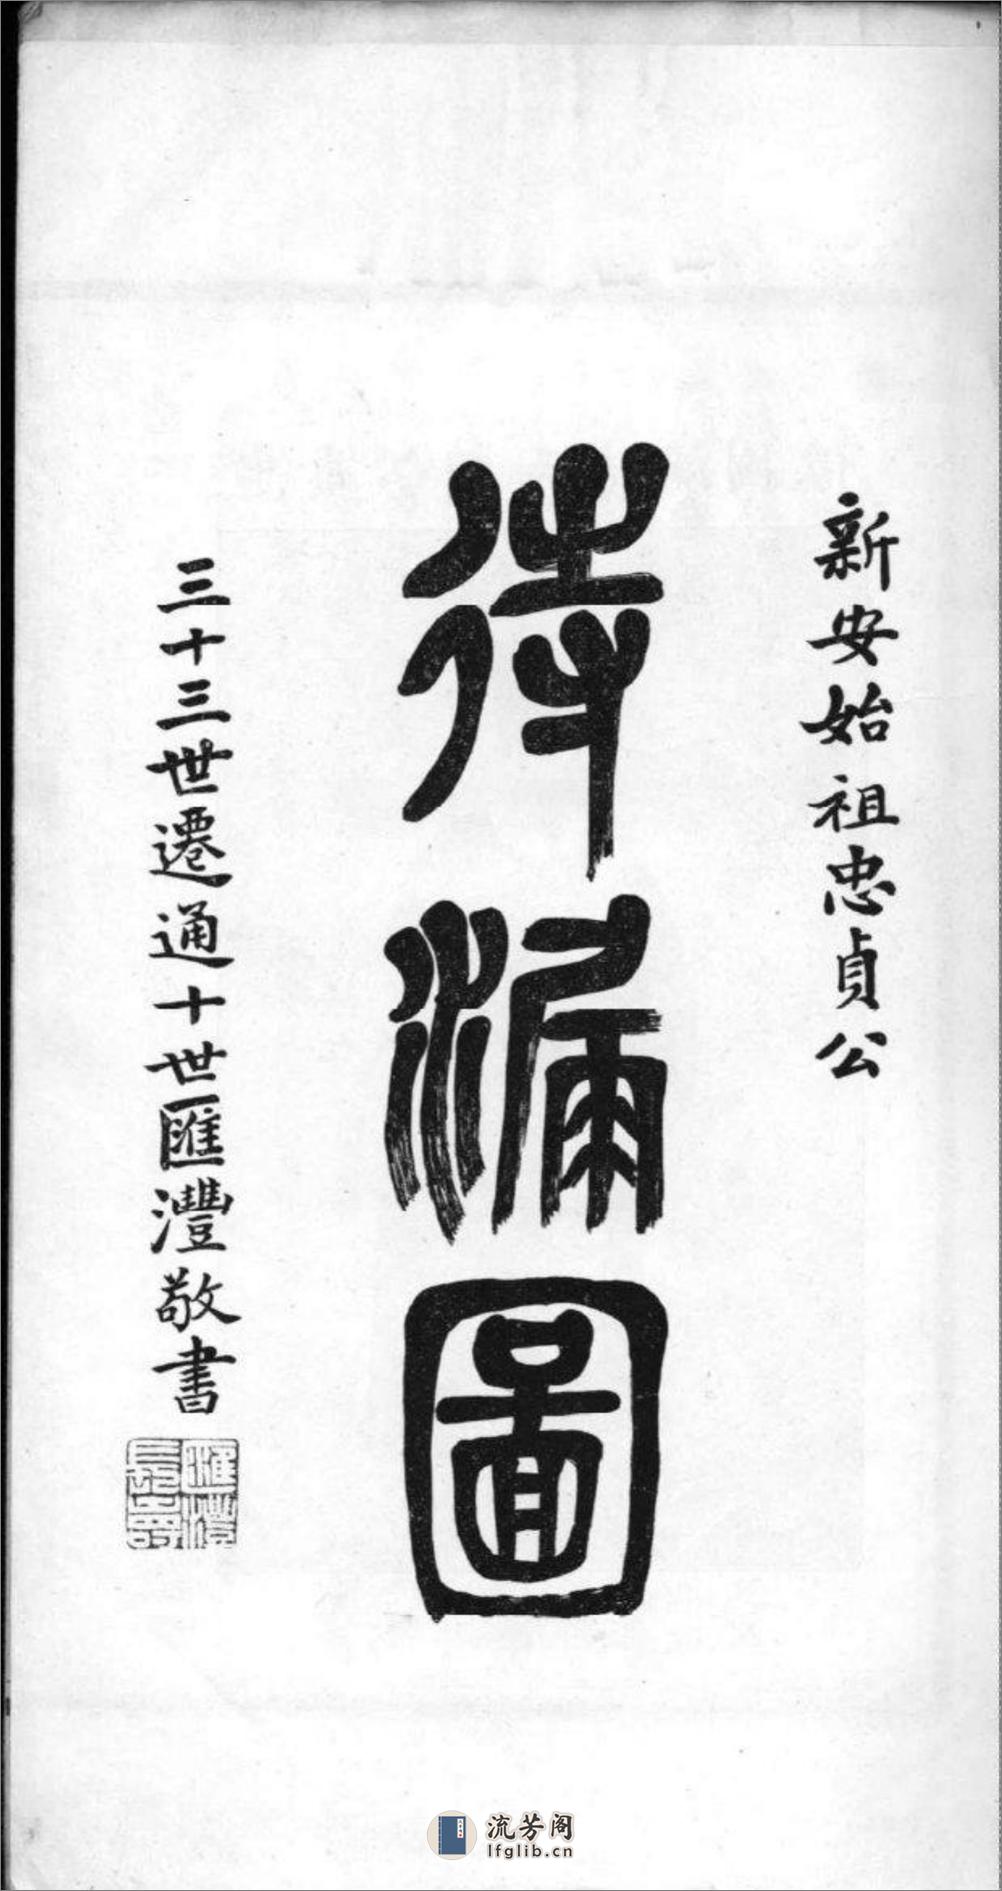 新安始祖忠貞公
待漏圖
三十三世遷通十世匯灃敬書
流芳阁
lfglib.cn